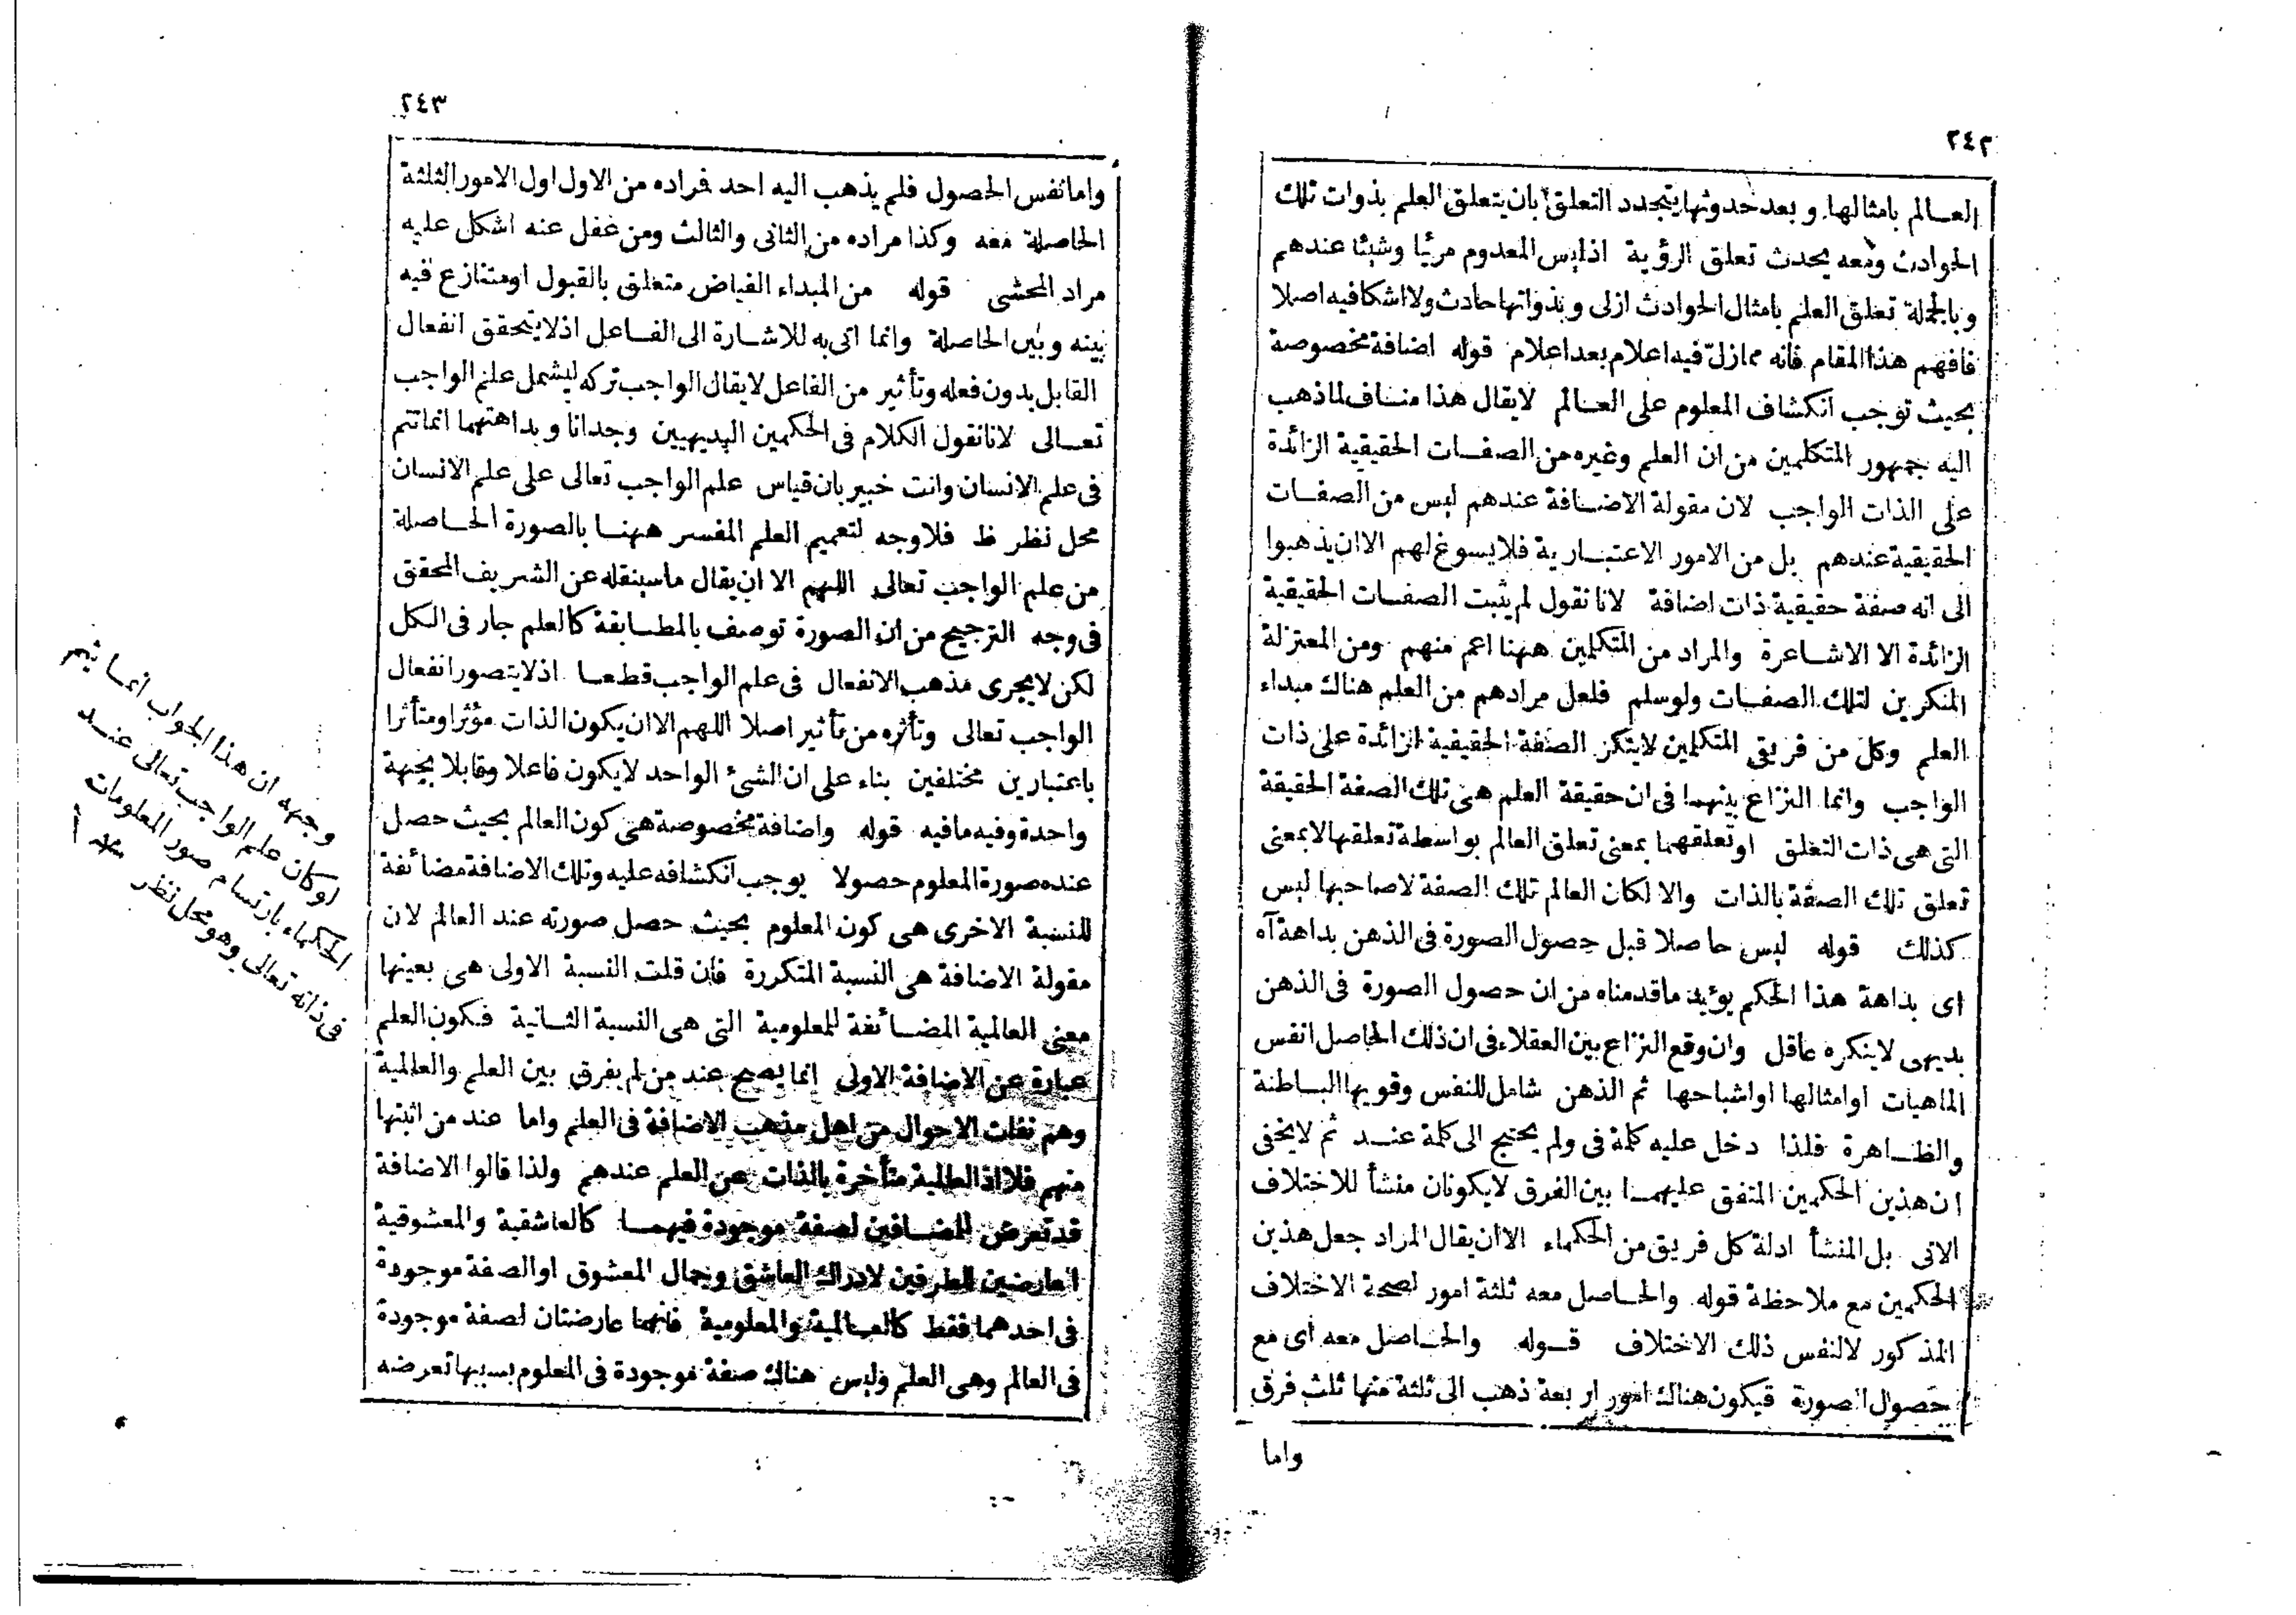 ٢٤٢
العـالم بامثالها و بعد حدوثها يتجدد التعلق بان يتعلق العلم بذوات تلك
الحوادث ومعه يحدث تعلق الرؤية اذليس المعدوم مرئيا وشيئا عندهم
وبالجملة تعلق العلم بامثال الحوادث ازلى و بذواتها حادث ولا اشكافيه اصلا
فافهم هذا المقام فانه ممازل فيه اعلام بعد اعلام قوله اضافة مخصوصة
بحيث توجب انكشاف المعلوم على العـالم لايقال هذا منـاف لماذهب
اليه جمهور المتكلمين من ان العلم وغيره من الصفـات الحقيقية الزائدة
على الذات الواجب لان مقولة الاضـافة عندهم ليس من الصفـات
الحقيقية عندهم بل من الامور الاعتبـارية فلايسوغ لهم الا ان يذهبوا
الى انه صفة حقيقية ذات اضافة لانا نقول لم يثبت الصفـات الحقيقية
الزائدة الا الاشـاعرة والمراد من المتكلمين ههنا اعم منهم ومن المعتزلة
المنكرين لتلك الصفـات ولوسلم فلعل مرادهم من العلم هناك مبداء
العلم وكل من فريقى المتكلمين لاينكر الصفة الحقيقية الزائدة على ذات
الواجب وانما النزاع بينهما فى ان حقيقة العلم هى تلك الصفة الحقيقة
التى هى ذات التعلق اوتعلقهما بمعنى تعلق العالم بواسطة تعلقها لابمعنى
تعلق تلك الصفة بالذات والا لكان العالم تلك الصفة لاصاحبها ليس
كذلك قوله ليس حاصلا قبل حصول الصورة فى الذهن بداهة آه
اى بداهة هذا الحكم يؤيد ماقدمناه من ان حصول الصورة فى الذهن
بديهى لاينكره عاقل وان وقع النزاع بين العقلاء فى ان ذلك الحاصل انفس
الماهيات اوامثالها اواشباحها ثم الذهن شامل للنفس وقويها البـاطنة
والظـاهرة فلذا دخل عليه كلمة فى ولم يحتج الى كلمة عنـد ثم لايخفى
ان هذين الحكمين المتفق عليهمـا بين الفرق لايكونان منشأ للاختلاف
الاتى بل المنشأ ادلة كل فريق من الحكماء الا ان يقال المراد جعل هذين
الحكمين مع ملاحظة قوله والحـاصل معه ثلثة امور لصحة الاختلاف
المذكور لالنفس ذلك الاختلاف قـوله والحـاصل معه اى مع
حصول الصورة فيكون هناك امور اربعة ذهب الى ثلثة منها ثلث فرق
واما
٢٤٣
واما نفس الحصول فلم يذهب اليه احد فراده من الاول اول الامور الثلثة
الحاصلة معه وكذا مراده من الثانى والثالث ومن غفل عنه اشكل عليه
مراد المحشى قوله من المبداء الفياض متعلق بالقبول اومتنازع فيه
بينه وبين الحاصلة وانما اتى به للاشـارة الى الفـاعل اذلايتحقق انفعال
القابل بدون فعله وتأثير من الفاعل لايقال الواجب تركه ليشمل علم الواجب
تعـالى لانا نقول الكلام فى الحكمين البديهيين وجدانا و بداهتهما انماتتم
فى علم الانسان وانت خبير بان قياس علم الواجب تعالى على علم الانسان
محل نظر ظ فلاوجه لتعميم العلم المفسر ههنـا بالصورة الحـاصلة
من علم الواجب تعالى اللهم الا ان يقال ماسينقله عن الشريف المحقق
فى وجه الترجيح من ان الصورة توصف بالمطـابقة كالعلم جار فى الكل
لكن لايجرى مذهب الانفعال فى علم الواجب قطعـا اذلايتصور انفعال
الواجب تعالى وتأثره من تأثير اصلا اللهم الا ان يكون الذات مؤثرا ومتأثرا
باعتبارين مختلفين بناء على ان الشئ الواحد لايكون فاعلا وقابلا بجهة
واحدة وفيه مافيه قوله واضافة مخصوصة هى كون العالم بحيث حصل
عنده صورة المعلوم حصولا يوجب انكشافه عليه وتلك الاضافة مضائفة
للنسبة الاخرى هى كون المعلوم بحيث حصل صورته عند العالم لان
مقولة الاضافة هى النسبة المتكررة فان قلت النسبة الاولى هى بعينها
معنى العالمية المضـائفة للمعلومية التى هى النسبة الثـانية فكون العلم
عبارة عن الاضافة الاولى انما يصح عند من لم يفرق بين العلم والعالمية
وهم نفات الاحوال من اهل مذهب الاضافة فى العلم واما عند من اثبتها
منهم فلا اذ العالمية متأخرة بالذات عن العلم عندهم ولذا قالوا الاضافة
قد تعرض للمضـافين لصفة موجودة فيهمـا كالعاشقية والمعشوقية
العارضين للطرفين لادراك العاشق وجمال المعشوق اوالصفة موجودة
فى احدهما فقط كالعـالمية والمعلومية فانهما عارضتان لصفة موجودة
فى العالم وهى العلم وليس هناك صفة موجودة فى المعلوم بسببها تعرضه
وجهه ان هذا الجواب انمـا يتم
لوكان علم الواجب تعالى عنـد
الحكماء بارتسام صور المعلومات
فى ذاته تعالى وهو محل نظر